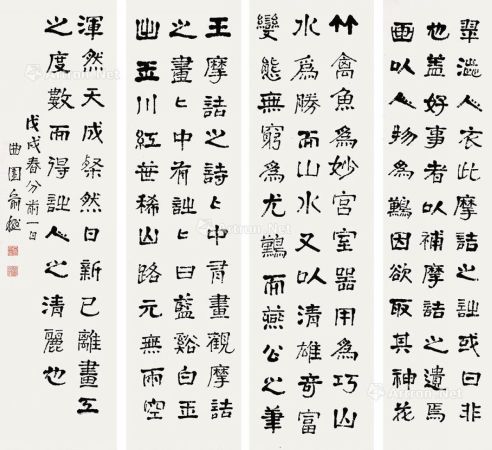 王摩詰之詩〻中有畫觀摩詰
之畫〻中有詩〻曰藍谿白石
出玉川紅葉稀山路元無雨空
翠濕人衣此摩詰之詩或曰非
也蓋好事者以補摩詰之遺焉
畫以人物為難因欲取其神花
竹禽魚為妙宮室器用為巧山
水為勝而山水又以清雄奇富
變態無窮為尤難而燕公之筆
渾然天成粲然日新已離畫工
之度數而得詩人之清麗也
戊戌春分前一日
曲園俞樾